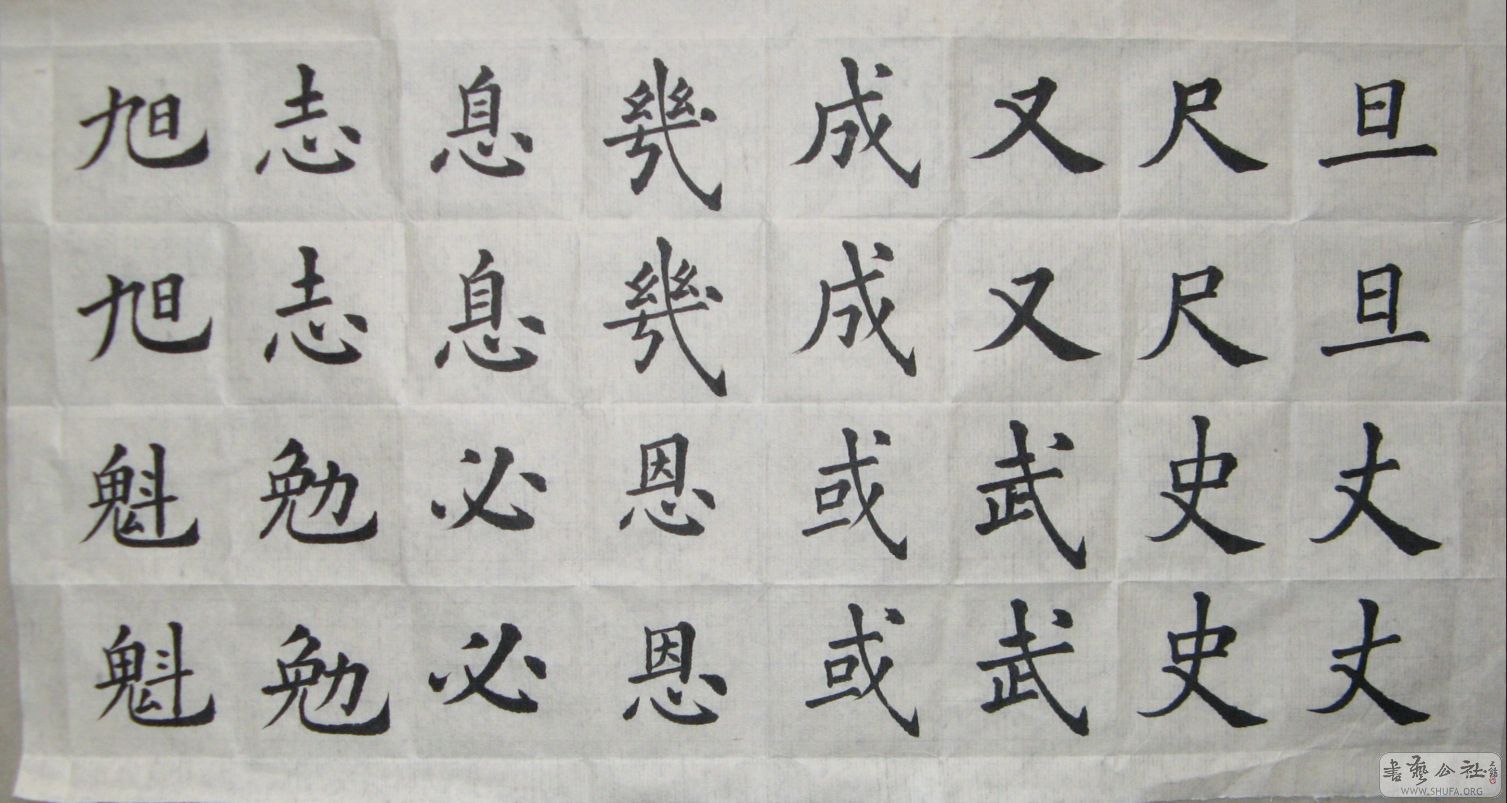 旦旦丈丈
尺尺史史
又又武武
成成或或
幾幾恩恩
息息必必
志志勉勉
旭旭魁魁
書藝公社
WWW.SHUFA.ORG